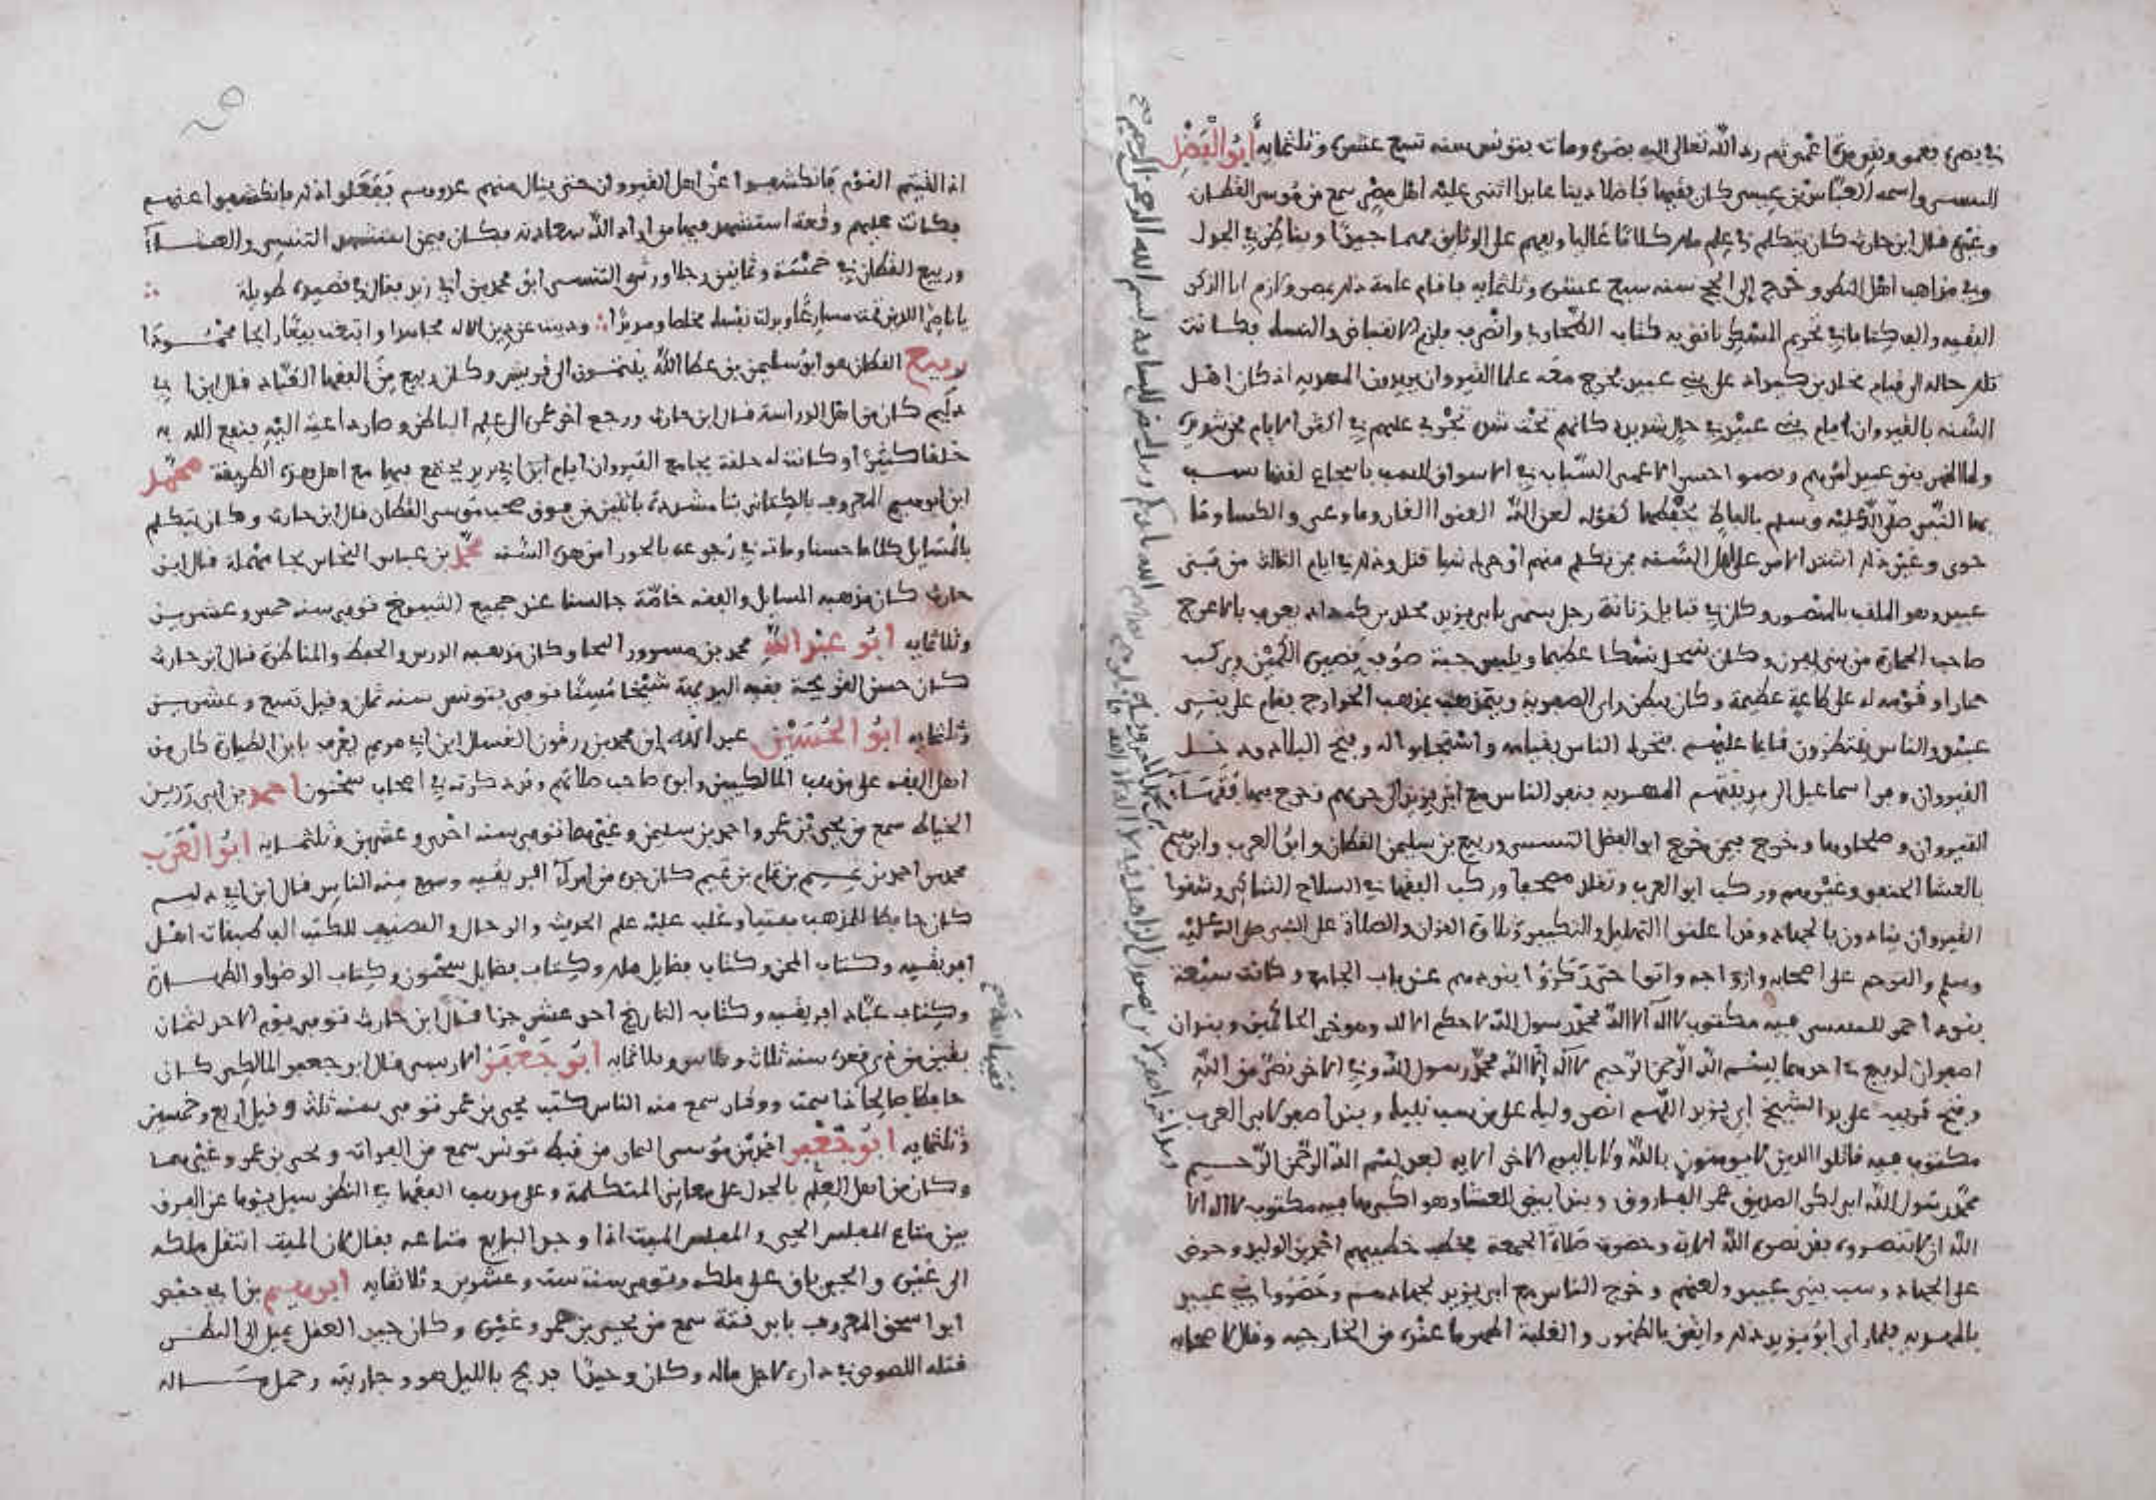 في بصره فعمي وبقي مدة أعمى ثم رد الله تعالى إليه بصره ومات بتونس سنة تسع عشرة وثلثماية أبو الفضل
الممسي واسمه العباس بن عيسى كان فقيها فاضلا دينا عابدا اثنى عليه أهل مصر سمع من موسى القطان
وغيره قال ابن حارث كان يتكلم في علم ملك كلاما عاليا ويفهم علم الوثايق فهما جيدا ويناظر في الجدل
وفي مذاهب أهل النظر وخرج إلى الحج سنة سبع عشرة وثلثماية
الفقيه والف كتابا في تحريم المسكر ناقض به كتاب الطحاوي وانصرف فلزم الانقباض والعبادة فكانت
تلك حاله إلى قيام مخلد بن كيداد على بني عبيد فخرج معه علما القيروان يريدون المهدية اذ كان اهل
السنة بالقيروان أيام بني عبيد في حال شديدة كانهم تحت ذمة تجري عليهم في أكثر الايام محن شديدة
ولما اظهر بنو عبيد أمرهم ونصبوا حسين الاعمى السباب في الاسواق للسب باسجاع لقنها يسب
بها النبي صلى الله عليه وسلم بالفاظ حفظها كقوله لعن الله العنوا الغار وما وعى والكسا وما
حوى وغير ذلك اشتد الامر على أهل السنة فمن تكلم منهم أو تحرك شيا قتل وذلك في ايام الثالث من بني
عبيد وهو الملقب بالمنصور وكان في قبايل زناتة رجل يسمى بابي يزيد مخلد بن كيداد يعرف بالاعرج
صاحب الحمارة من بني يفرن وكان يتحلى نسكا عظيما ويلبس جبة صوف قصيرة الكمين ويركب
حمارا وقومه له على طاعة عظيمة وكان يبطن راي الصفرية ويتمذهب بمذهب الخوارج فقام على بني
عبيد والناس ينتظرون قايما عليهم فتحرك الناس لقيامه واستجابوا له وفتح البلاد ودخل
القيروان وفر اسماعيل إلى مدينتهم المهدية فنفر الناس مع ابي يزيد إلى حربهم وخرج فيها فقهاء
القيروان وصلحاوها وخرج فيمن خرج ابو الفضل الممسي وربيع بن سليمن القطان وابو العرب وابرهيم
بالعشا الحنفي وغيرهم وركب ابو العرب وتقلد مصحفا وركب الفقها في السلاح الشاكي وشقوا
القيروان ينادون بالجهاد وقد اعلنوا التهليل والتكبير وتلاوة القران والصلاة على النبي صلى الله عليه
وسلم والترحم على اصحابه وازواجه واتوا حتى ركزوا بنودهم عند باب الجامع وكانت سبعة
بنود احمر للممسي فيه مكتوب لا اله الا الله محمد رسول الله لا حكم الا لله وهو خير الحاكمين وبندان
اصفران لربيع في احدهما بسم الله الرحمن الرحيم لا اله إلا الله محمد رسول الله وفي الاخر نصر من الله
وفتح قريب على يد الشيخ ابي يزيد اللهم انصر وليك على من سب نبيك وبند اصفر لابي العرب
مكتوب فيه قاتلوا الذين لا يومنون بالله ولا باليوم الاخر الاية بعد بسم الله الرحمن الرحيم
محمد رسول الله ابي بكر الصديق عمر الفاروق وبند ابيض للعشا وهو اكبرها فيه مكتوب لا اله الا
الله ان لا تنصروه فقد نصره الله الاية وحضرت صلاة الجمعة فخطب خطيبهم احمد بن الوليد وحرض
على الجهاد وسب بني عبيد ولعنهم وخرج الناس مع ابي يزيد لجهادهم وحصروا بني عبيد
بالمهدية فلما راى أبو يزيد ذلك وايقن بالظهور والغلبة اظهر ما عنده من الخارجية وقال لاصحابه
بسم الله الرحمن الرحيم
اذا لقيتم القوم فانكشفوا عن اهل القيروان حتى ينال منهم عدوهم ففعلوا ذلك فانكشفوا عنهم
فكانت عليهم وقعة استشهد فيها من اراد الله سعادته فكان فيمن استشهد الممسي والعشاء
وربيع القطان في خمسة وثمانين رجلا ورثى الممسي ابو محمد بن أبي زيد فقال في قصيدة طويلة
يا ناصرا للدين قمت مسارعا وبذلت نفسك مخلصا ومريدا وذببت عن دين الاله مجاهدا وابتعت بيعا رابحا محمودا
ربيع القطان هو ابو سليمن بن عطا الله ينتمون الى قريش وكان ربيع من الفقها العباد قال ابن ابي
دليم كان من اهل الدراسة قال ابن حارث ورجع اخر عمره الى علم الباطن وصار داعية اليه فنفع الله به
خلقا كثيرا وكانت له حلقة بجامع القيروان ايام ابي يزيد يجتمع فيها مع اهل هذه الطريقة محمد
صحب موسى القطان قال ابن حارث وكان يتكلم
محمد بن عباس النحاس بحا مهملة قال ابن
حارث كان مذهبه المسايل والفقه خاصة جالسنا عند جميع الشيوخ توفي سنة خمس وعشرين
وثلاثماية ابو عبد الله محمد بن مسرور النجا وكان مذهبه الدرس والحفظ والمناظرة قال ابن حارث
كان حسن القريحة فقيه البديهة شيخا مسنا توفي بتونس سنة ثمان وقيل تسع وعشرين
وثلثماية ابو الحسين عبد الله ابن محمد بن زرقون الغسال ابن ابي مريم يعرف بابن الطيارة كان من
اهل الفقه على مذهب المالكيين وابن صاحب صلاتهم وقد ذكرته في اصحاب سحنون احمد بن ابي رزين
الخياط سمع من يحيى بن عمر واحمد بن سليمن وغيرهما توفي سنة احدى وعشرين وثلثماية ابو العرب
محمد بن احمد بن تميم بن تمام بن تميم كان جده من امرآ افريقية وسمع منه الناس قال ابن ابي دليم
كان حافظا للمذهب مفتيا وغلب عليه علم الحديث والرجال والتصنيف للكتب الف طبقات اهل
افريقية وكتاب المحن وكتاب فضايل ملك وكتاب فضايل سحنون وكتاب الوضو والطهارة
وكتاب عباد افريقية وكتاب التاريخ احد عشر جزا قال ابن حارث توفي يوم الاحد لثمان
بقين من ذي قعدة سنة ثلاث وثلاثين وثلاثماية ابو جعفر قال ابو جعفر المالكي كان
حافظا صالحا ذا سمت ووقار سمع منه الناس كتب يحيى بن عمر توفي سنة ثلث وقيل اربع وخمسين
وثلثماية ابو جعفر احمد بن موسى التمار من قبط تونس سمع من الفرات ويحيى بن عمر وغيرهما
وكان من اهل العلم بالجدل على معاني المتكلمة وعلى مذهب الفقها في النظر سيل يوما عن الفرق
بين متاع المفلس الحي والمفلس الميت اذا وجد البايع متاعه فقال لان الميت انتقل ملكه
الى غيره والحي باق على ملكه وتوفي سنة ست وعشرين وثلاثماية ابرهيم بن ابي جعفر
ابو اسحق المعروف بابي فتة سمع من يحيى بن عمر وغيره وكان جيد العقل يميل الى النظر
قتله اللصوص في داره لاجل ماله وكان وحيدا فذبح بالليل هو وجاريته وحمل ماله